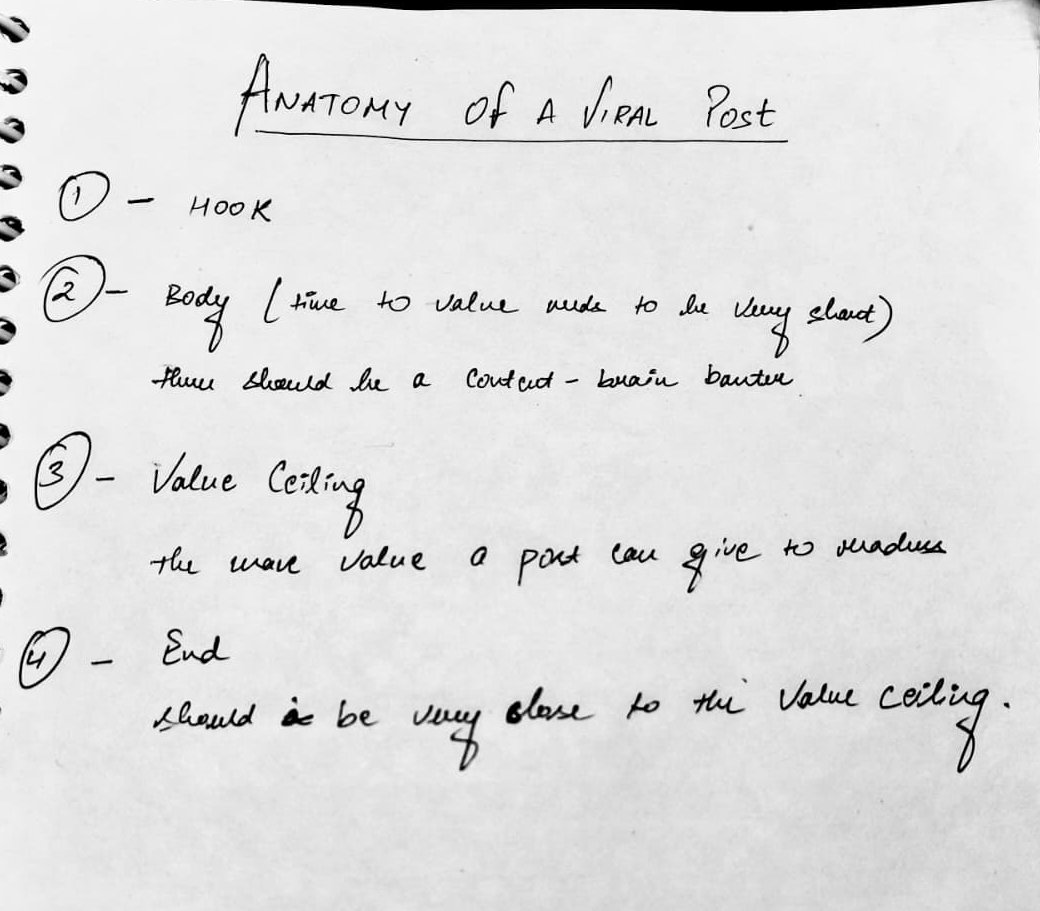 ANATOMY Of A VIRAL Post
1 - HOOK
2 - Body (time to value needs to be very short)
there should be a content - brain banter
3 - Value Ceiling
the value a post can give to readers
4 - End
should be very close to the value ceiling.